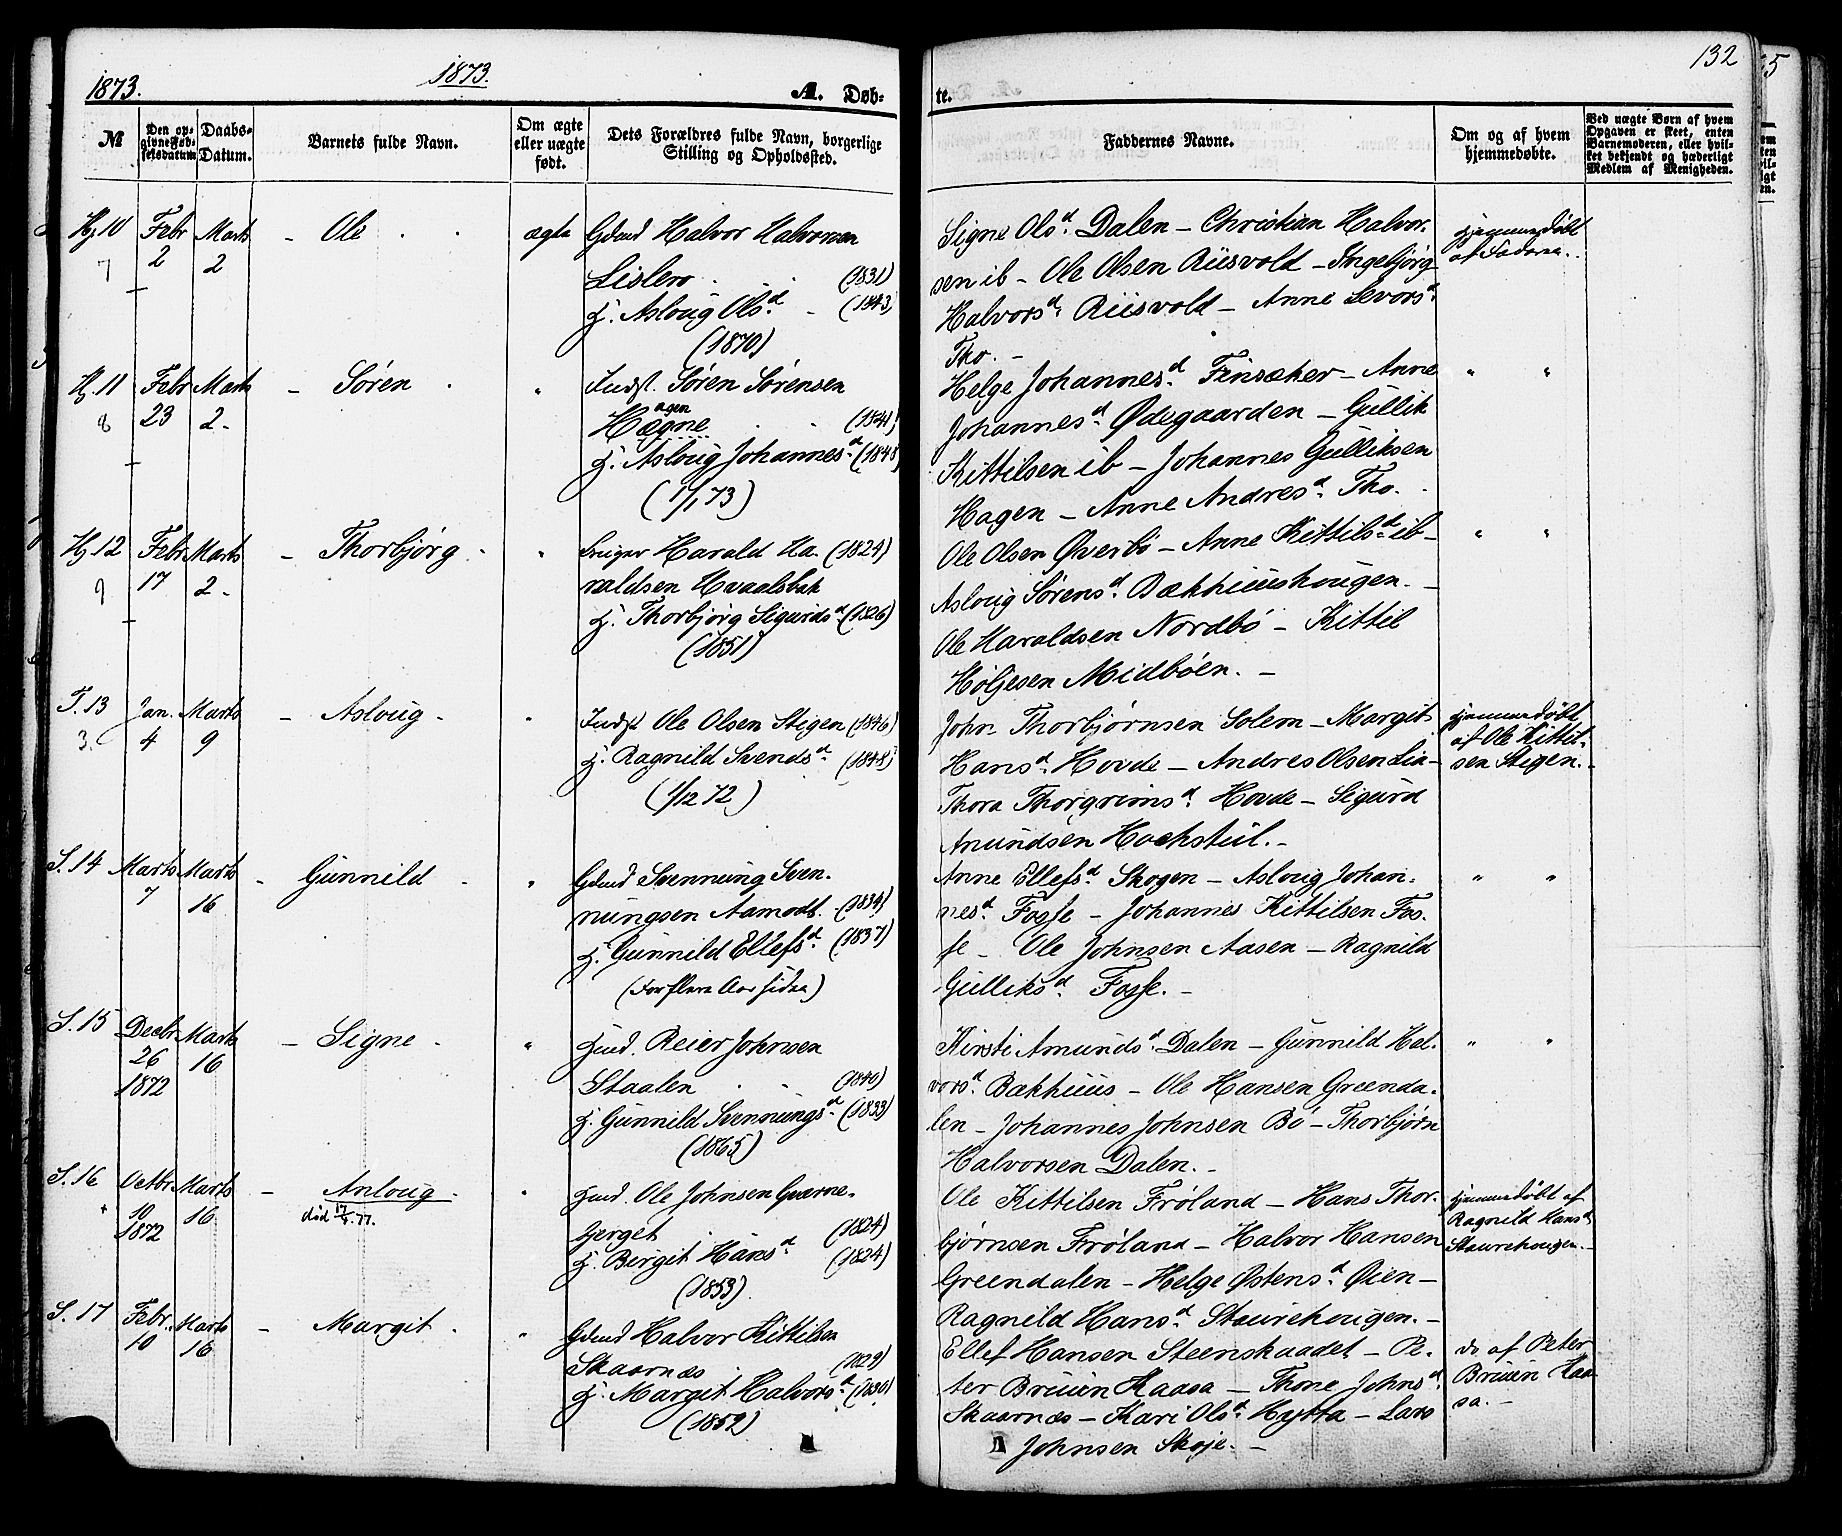 1873.
1873.
A. Døb-
te.
132
№
Den op-
givne Fød-
selsdatum
Daabs-
Datum.
Barnets fulde Navn.
Om ægte
eller uægte
født.
Dets Forældres fulde Navn, borgerlige
Stilling og Opholdssted.
Faddernes Navne.
Om og af hvem
hjemmedøbte.
Ved uægte Børn af hvem
Opgaven er skeet, enten
Barnemoderen, eller hvil-
ket bekjendt og hæderligt
Medlem af Menigheden.
Hj. 10
7
Febr
2
Marts
2
- Ole
ægte
Gdmd Halvor Halvorsen
Lislero (1831)
H. Asloug Olsd. (1843)
(1870)
Signe Olsd. Dalen - Christian Halvor-
sen ib - Ole Olsen Riisvold - Ingebjørg
Halvorsd. Riisvold - Anne Levorsd.
Tho. -
hjemmedøbt
af Faderen.
Hj. 11
8
Febr
23
Marts
2.
- Søren
"
Indst. Søren Sørensen
agen
Hægne (1841)
H. Asloug Johannesd. (1848)
(1/1 73)
Helge Johannesd. Finsæker - Anne
Johannesd. Ødegaarden - Gullik
Kittilsen ib - Johannes Gulliksen
Hagen - Anne Andresd. Tho.
" "
Hj. 12
9
Febr
17
Marts
2.
- Thorbjørg
"
Bruger Harald Ha- (1824)
raldsen Hvaalsbak
H. Thorbjørg Sigurdsd. (1826)
(1851)
Ole Olsen Øverbø - Anne Kittilsd. ib -
Asloug Sørensd. Bækhuushougen. -
Ole Haraldsen Nordbø - Kittil
Høljesen Midbøen. -
" "
T. 13
3.
Jan.
4
Marts
9
- Asloug.
"
Indst Ole Olsen Stigen (1846)
H. Ragnild Svendsd. (1848)
(1/12 72)
John Thorbjørnsen Solem - Margit
Hansd. Hovde - Andres Olsen Lia -
Thora Thorgrimsd. Hovde - Sigurd
Amundsen Hochstul. -
hjemmedøbt
af Ole Kittil-
sen Stigen.
S. 14
Marts
7
Marts
16
- Gunnild
"
Gdmd Svennung Sven-
nungsen Aamodt. (1834)
H. Gunnild Ellefsd. (1837)
(For flere Aar siden)
Anne Ellefsd. Skogen - Asloug Johan-
nesd. Fosse - Johannes Kittilsen Fos-
se - Ole Johnsen Aasen - Ragnild
Gulliksd. Fosse. -
" "
S. 15
Decbr
26
1872
Marts
16
- Signe
"
Hmd. Reier Johnsen
Staalen (1840)
H. Gunnild Svennungsd. (1833)
(1865)
Kirsti Amundsd. Dalen - Gunnild Hal-
vorsd. Bækhuus - Ole Hansen Grenda-
len - Johannes Johnsen Bø - Thorbjørn
Halvorsen Dalen. -
" "
S. 16
"
Octbr
10
1872
Marts
16
- Anloug
død 17/4.77.
"
Hmd. Ole Johnsen Gværne-
bjerget (1824)
H. Berget Hansd. (1824)
(1853)
Ole Kittilsen Frøland - Hans Thor-
bjørnsen Frøland - Halvor Hansen
Greendalen - Helge Østensd. Øien -
Ragnild Hansd. Staurehougen. -
hjemmedøbt af
Ragnild Hansd.
Staurehougen. -
S. 17
Febr.
10
Marts
16
- Margit
"
Gdmd Halvor Kittilsen
Skaarnæs (1829)
H. Margit Halvorsd. (1830)
(1852)
Ellef Hansen Steenskaadet - Pe-
ter Bruun Kaasa - Thone Johnsd.
Skaarnæs - Kari Olsd. Hytta - Lars
Johnsen Skoje. -
do af Peter
Bruun Kaa-
sa. -